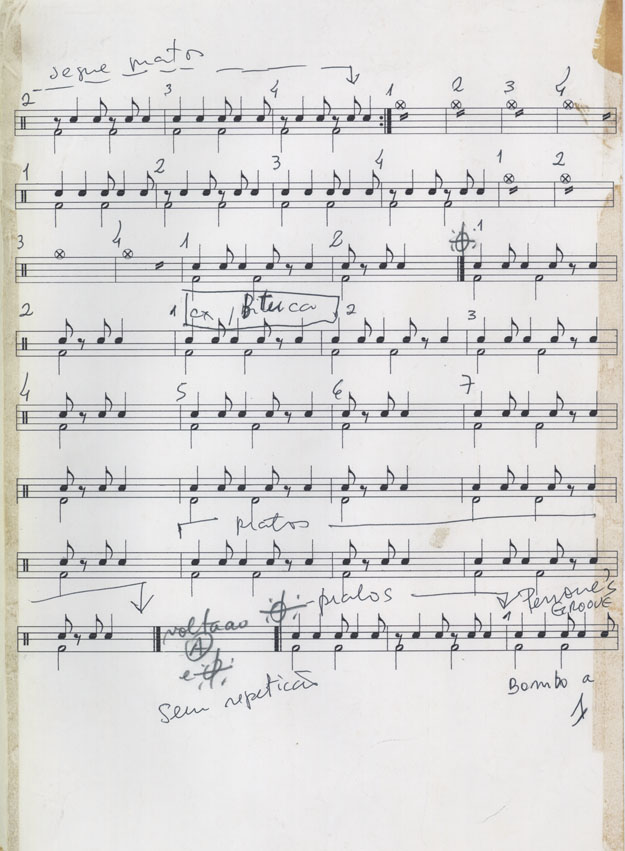 segue pratos
2 3 4 1 2 3 4
1 2 3 4 1 2
3 4 1 2 1
cx / Bituca
2 1 2 3
4 5 6 7
pratos
pratos Perrone's
GROOVE
volta ao
A
e
1
Bombo a
sem repetição